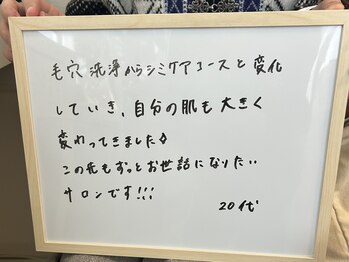 毛穴洗浄からシミケアコースと変化
していき、自分の肌も大きく
変わってきました♢
この先もずっとお世話になりたい
サロンです!!!
20代